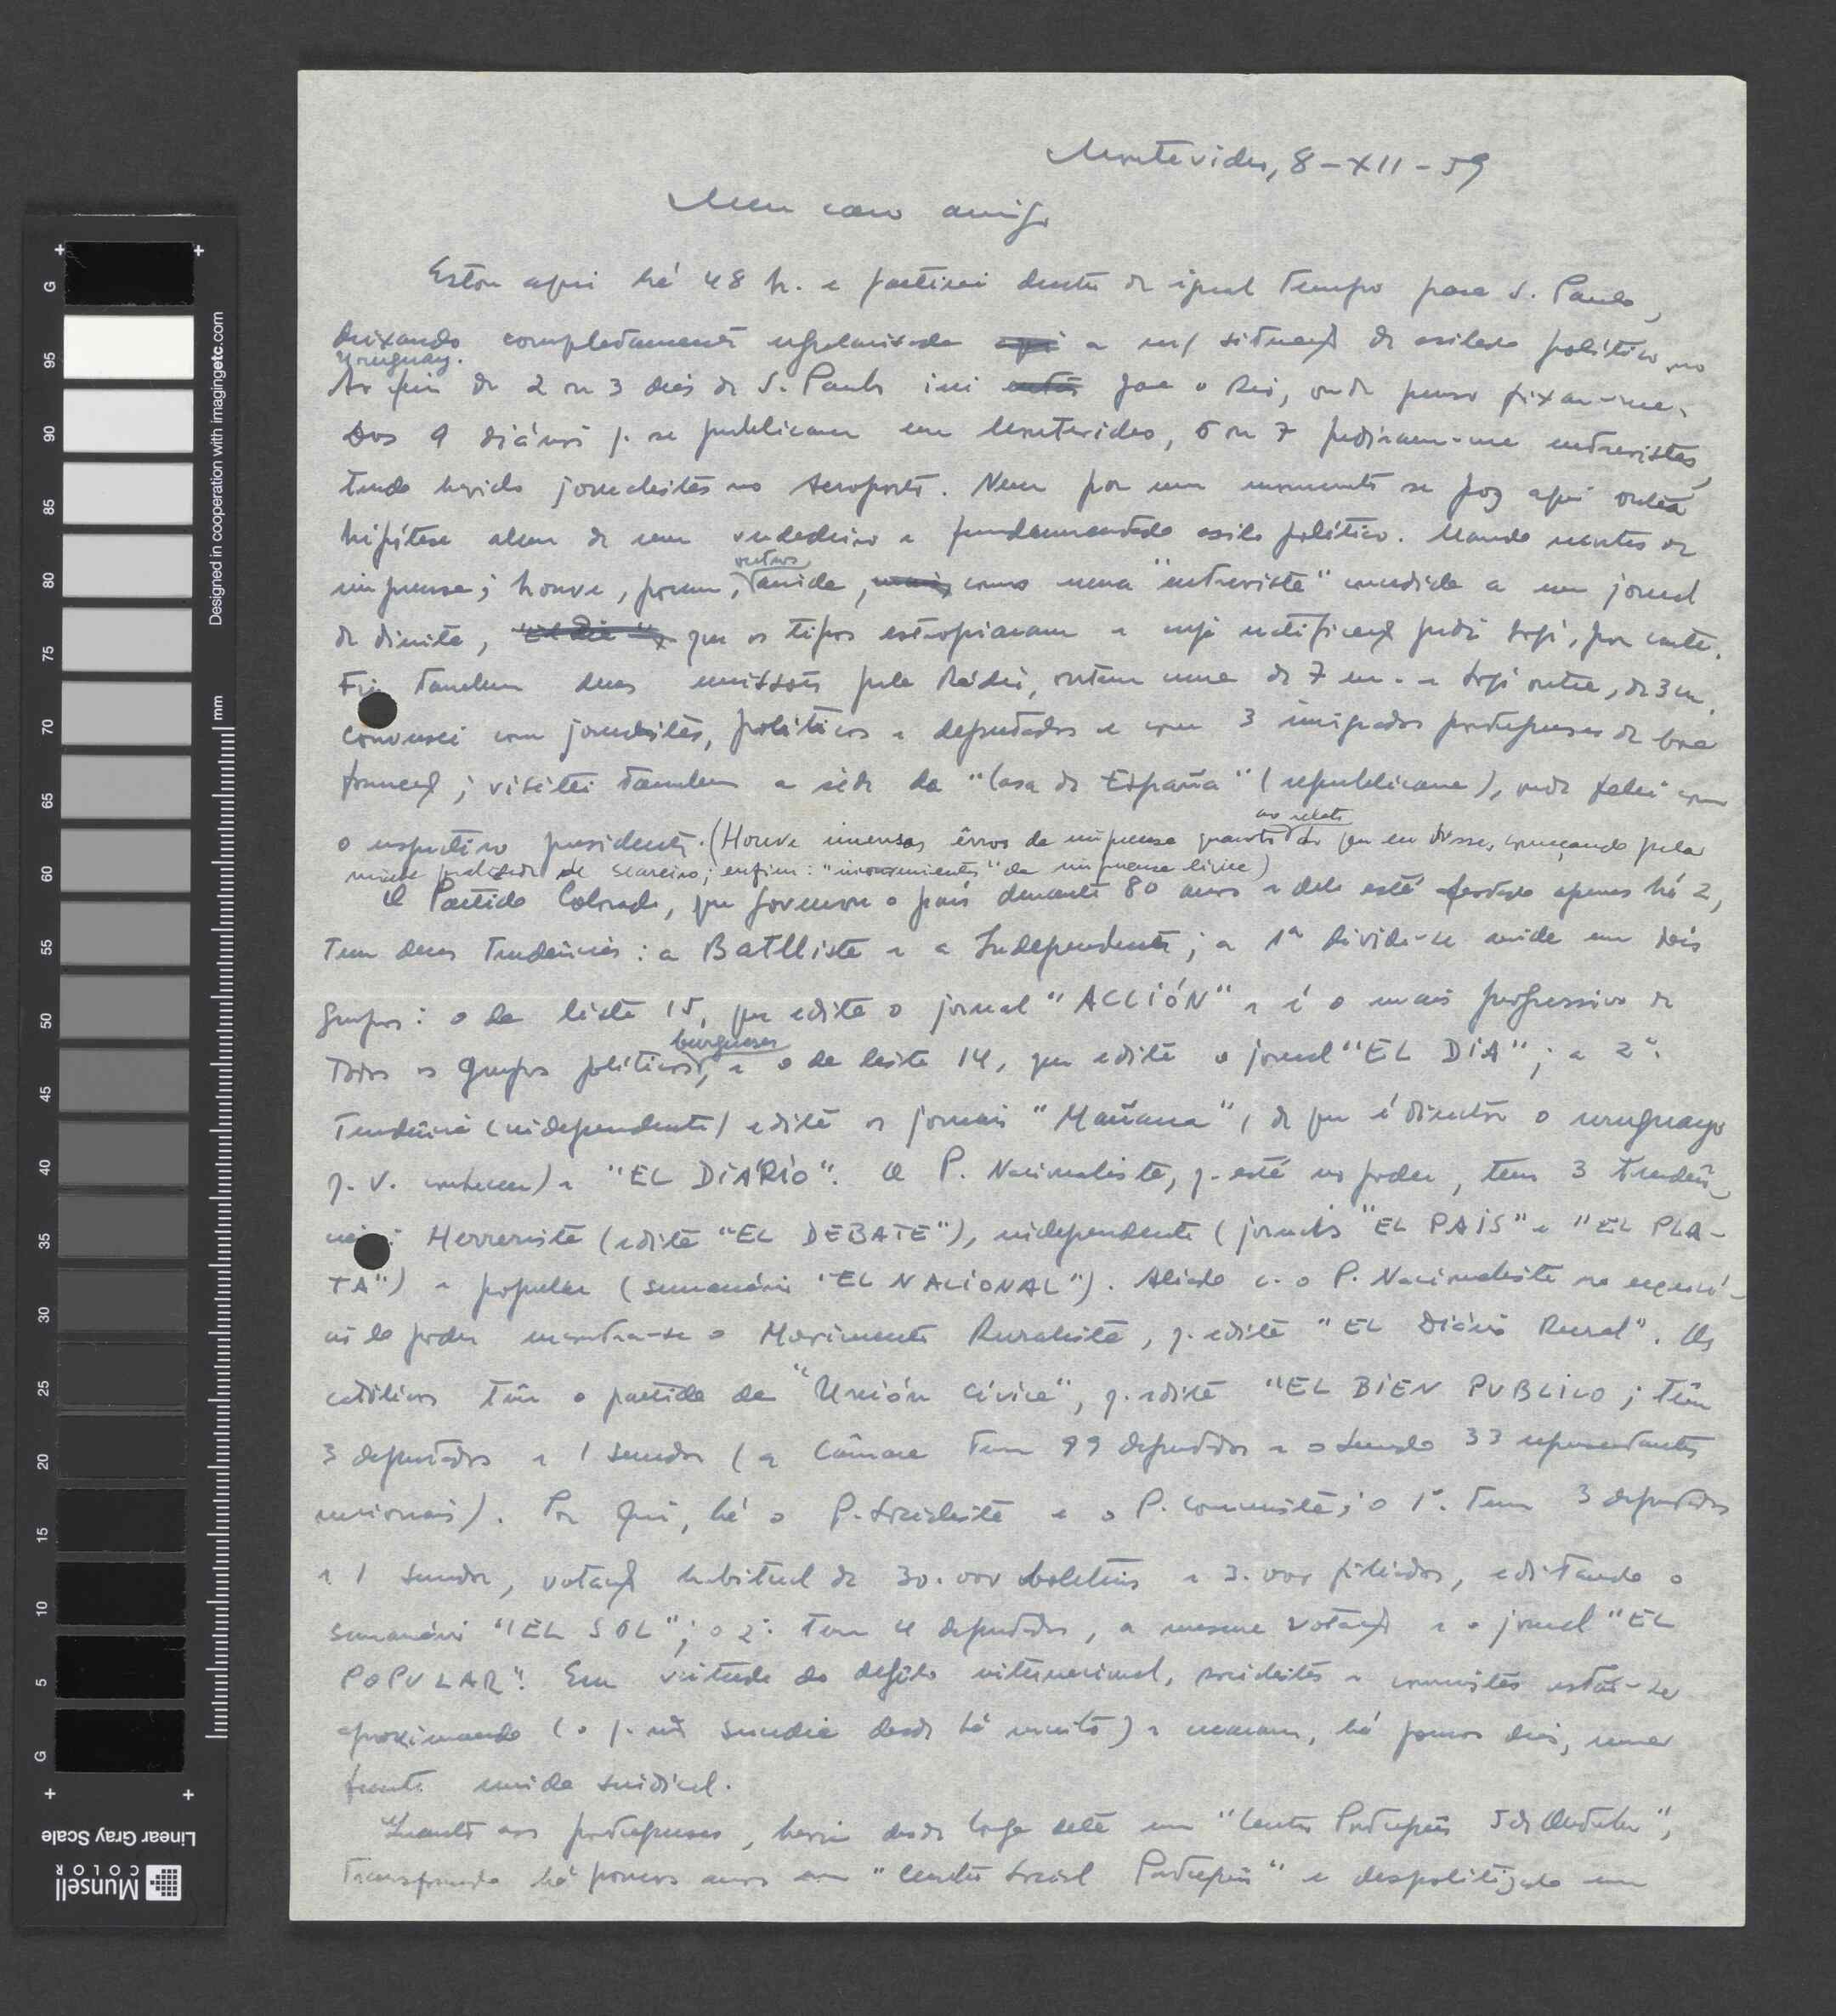 Montevideu, 8-XII-59
Meu caro amigo
Estou aqui há 48 h. e partirei dentro de igual tempo para S. Paulo,
deixando completamente regularizada aqui a m/ situação de asilado político no
Uruguay.
Ao fim de 2 ou 3 dias de S. Paulo irei então para o Rio, onde penso fixar-me.
Dos 9 diários q. se publicam em Montevideo, 6 ou 7 pediram-me entrevistas,
tendo havido jornalistas no Aeroporto. Nem por um momento se poz aqui outra
hipótese alem de um verdadeiro e fundamentado asilo político. Mando recortes de
imprensa; houve, porem, outros ainda, mais como uma "entrevista" concedida a um jornal
de direita, "El Dia", que os tipos estropiaram e cuja rectificação pedi hoje, por carta.
Fiz tambem duas emissões pela Rádio, ontem uma de 7 m. e hoje outra, de 3 m.
Conversei com jornalistas, políticos e deputados e com 3 imigrados portugueses de boa
formação; visitei tambem a séde da "Casa de España" (republicana), onde falei com
o respectivo presidente. (Houve imensos êrros da imprensa quanto ao relato do que eu disse, começando pela
minha qualidade de seareiro; enfim: "inconvenientes" da imprensa livre)
O Partido Colorado, que governou o país durante 80 anos e dele está afastado apenas há 2,
tem duas tendências: a Batllista e a Independente; a 1ª divide-se ainda em dois
grupos: o da lista 15, que edita o jornal "ACCIÓN" e é o mais progressivo de
todos os grupos políticos burgueses, e o da lista 14, que edita o jornal "EL DIA"; a 2ª
tendência (independente) edita os jornais "Mañana", (de que é director o uruguayo
q. V. conheceu) e "EL DIÁRIO". O P. Nacionalista, q. está no poder, tem 3 tendên-
cias: Herrerista (edita "EL DEBATE"), independente (jornais "EL PAIS" e "EL PLA-
TA") e popular (semanário "EL NACIONAL"). Aliado c. o P. Nacionalista no exercí-
cio do poder encontra-se o Movimento Ruralista, q. edita "EL Diário Rural". Os
católicos têm o partido da "Unión Cívica", q. edita "EL BIEN PUBLICO; têm
3 deputados e 1 senador (a Câmara tem 99 deputados e o Senado 33 representantes
nacionais). Por fim, há o P. Socialista e o P. Comunista; o 1º. tem 3 deputados
e 1 senador, votação habitual de 30.000 boletins e 3.000 filiados, editando o
semanário "EL SOL"; o 2º tem 4 deputados, a mesma votação e o jornal "EL
POPULAR". Em virtude do degêlo internacional, socialistas e comunistas estão-se
aproximando (o q. não sucedia desde há muito) e criaram, há poucos dias, uma
frente unida sindical.
Quanto aos portugueses, havia desde longa data um "Centro Português 5 de Outubro",
transformado há poucos anos em "Centro Social Português" e despolitizado em